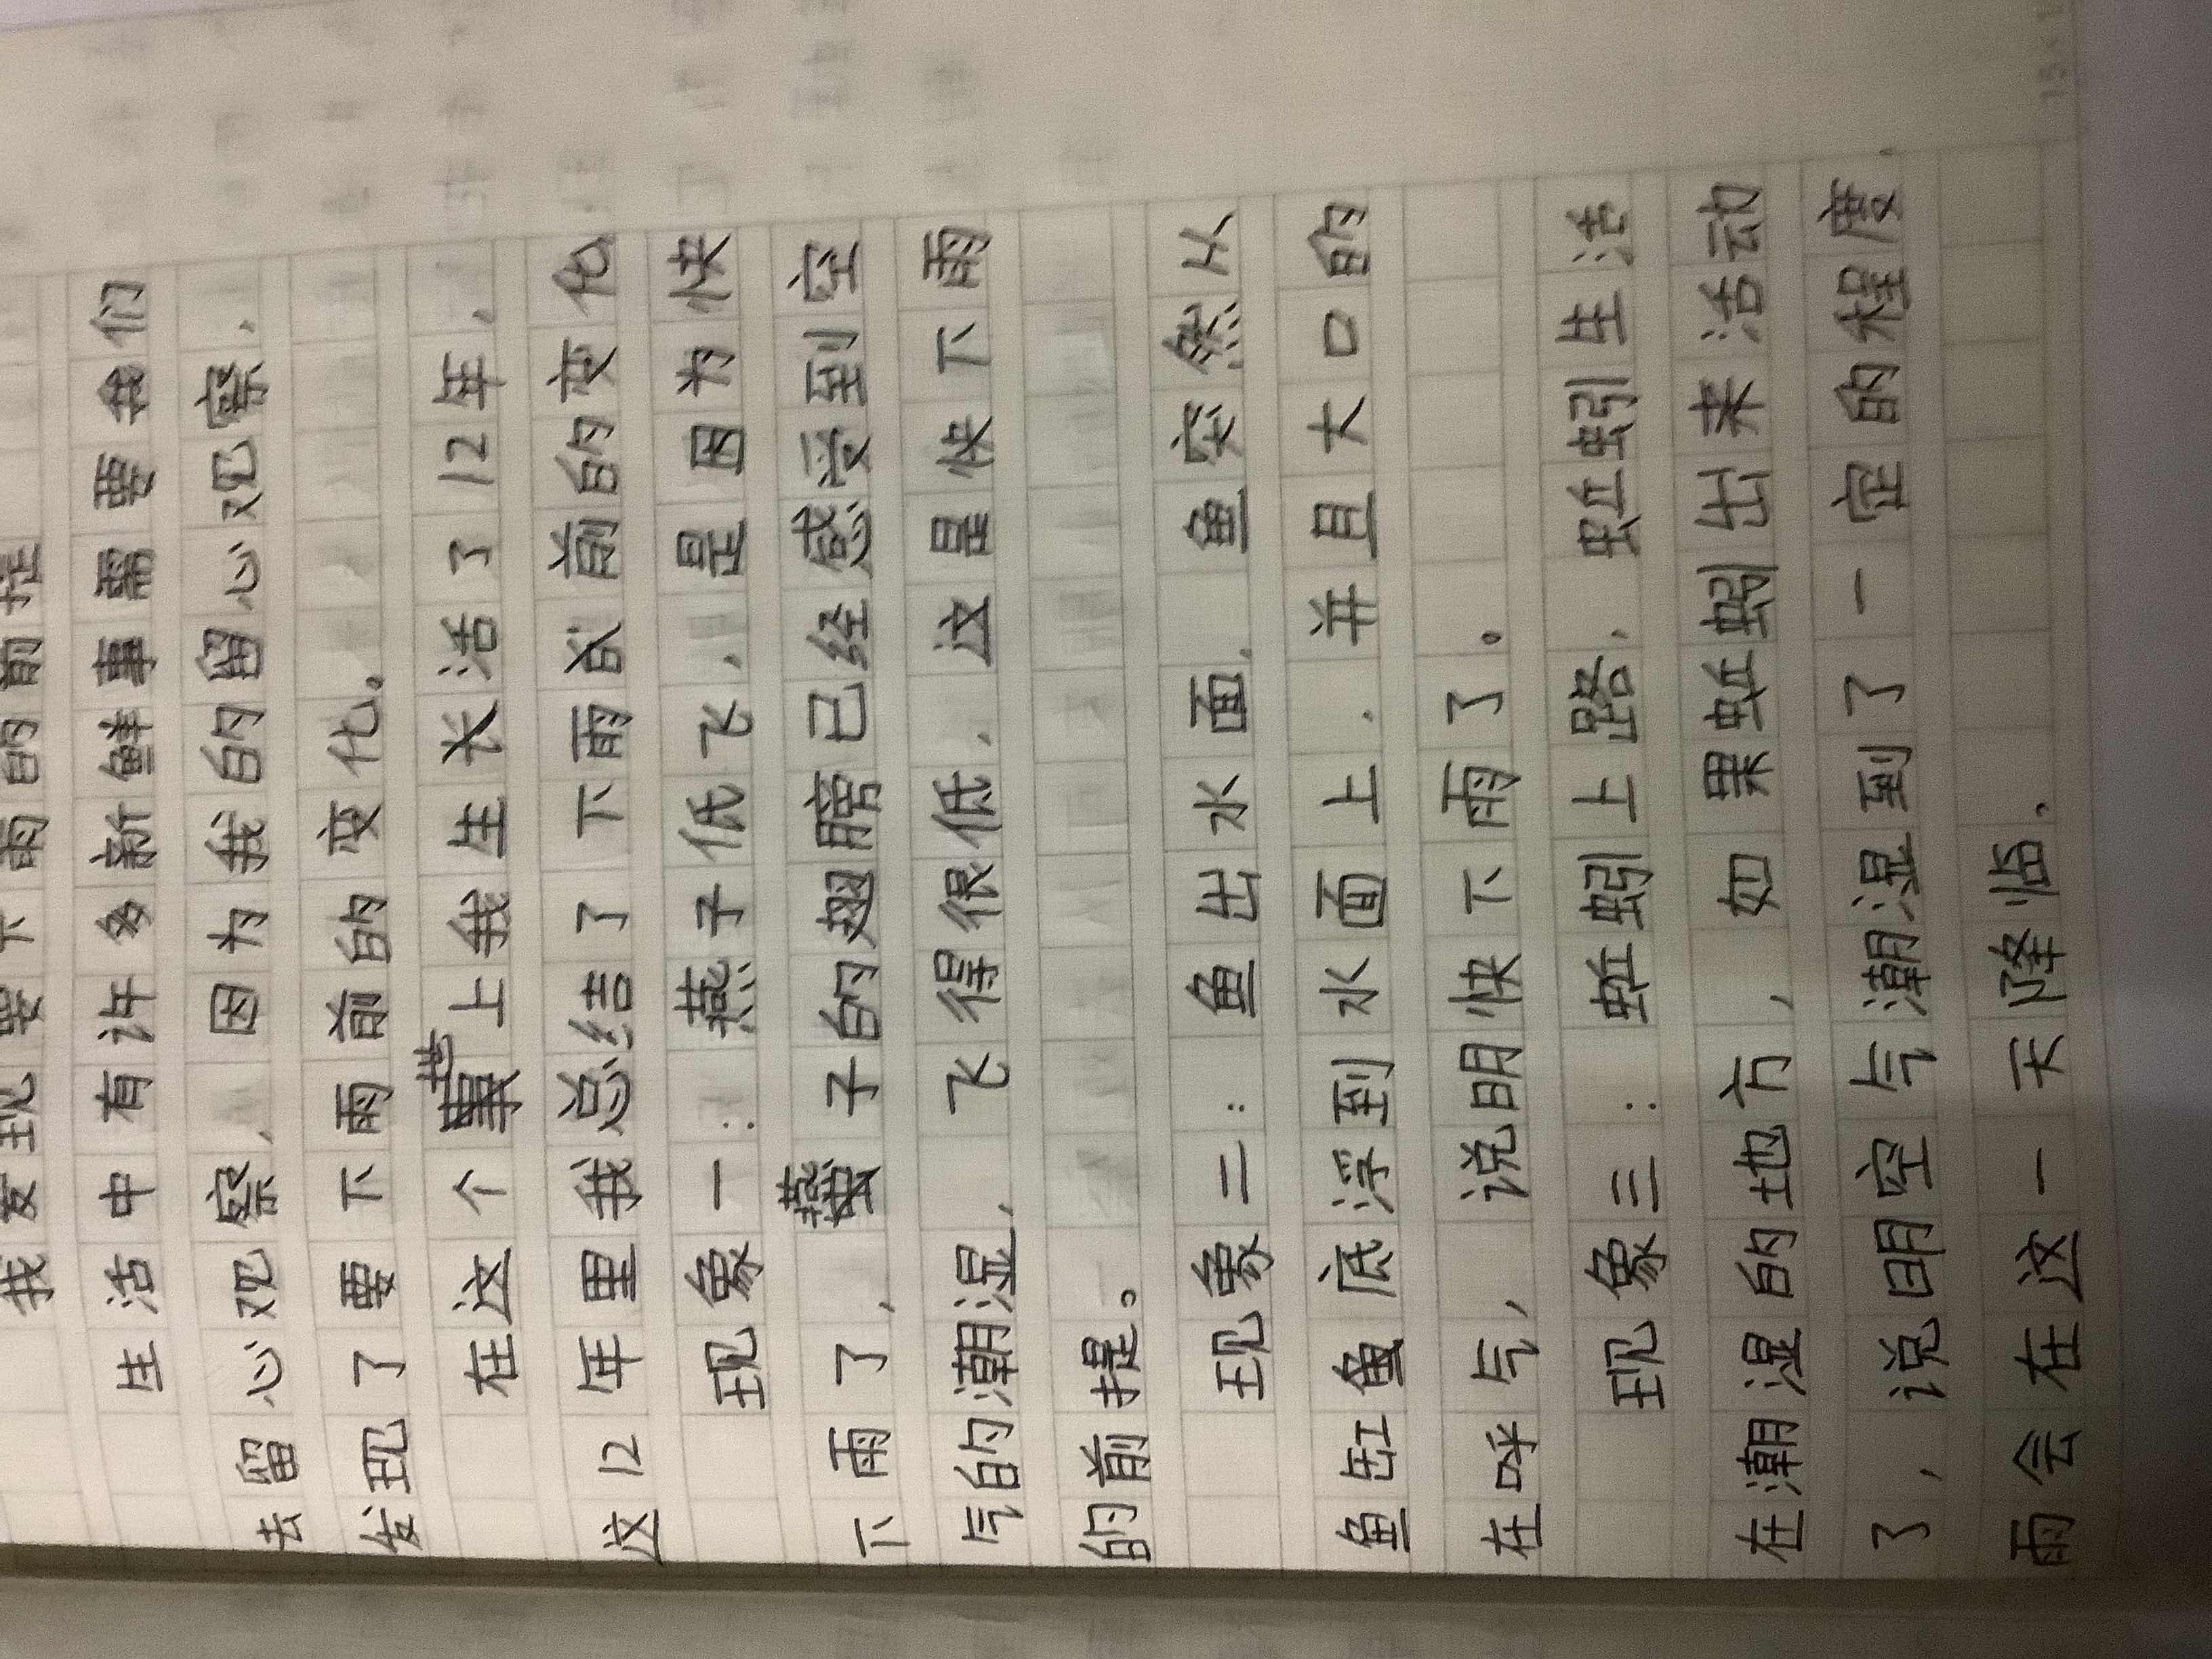 我发现要下雨的前
生活中有许多新鲜事需要我们
去留心观察，因为我的留心观察，
发现了要下雨前的变化。
在这个世上我生长活了12年，
这12年里我总结了下雨前的变化
现象一：燕子低飞，是因为快
下雨了，燕子的翅膀已经感受到空
气的潮湿，飞得很低，这是快下雨
的前提。
现象二：鱼出水面，鱼突然从
鱼缸鱼底浮到水面上，并且大口的
在呼气，说明快下雨了。
现象三：蚯蚓上路，蚯蚓生活
在潮湿的地方，如果蚯蚓出来活动
了，说明空气潮湿到了一定的程度，
雨会在这一天降临。